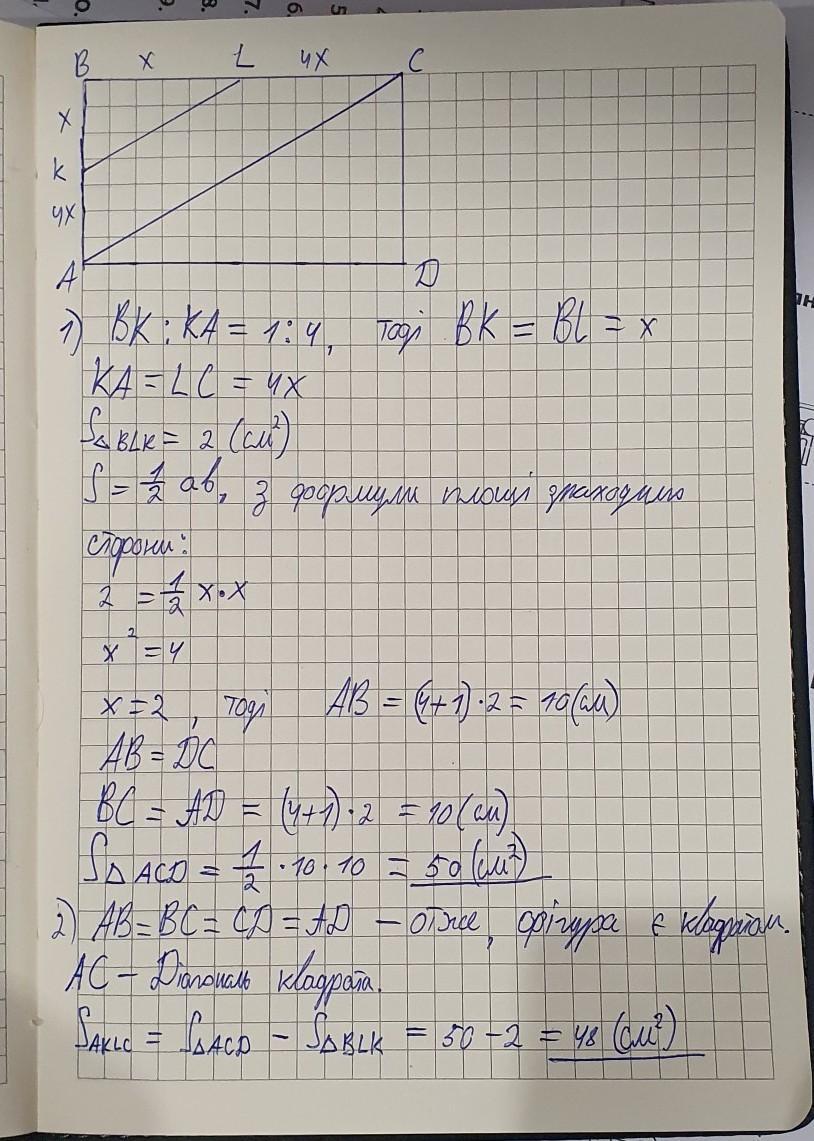 B x L 4x C
x
K
4x
A D
1) BK : KA = 1 : 4, тоді BK = BL = x
KA = LC = 4x
S△BLK = 2 (см²)
S = 1/2 ab, з формули площі знаходимо
сторони:
2 = 1/2 x · x
x² = 4
x = 2, тоді AB = (4+1) · 2 = 10(см)
AB = DC
BC = AD = (4+1) · 2 = 10(см)
S△ACD = 1/2 · 10 · 10 = 50(см²)
2) AB = BC = CD = AD – отже, фігура є квадратом.
AC – Діагональ квадрата.
SAKLC = S△ACD – S△BLK = 50 – 2 = 48 (см²)